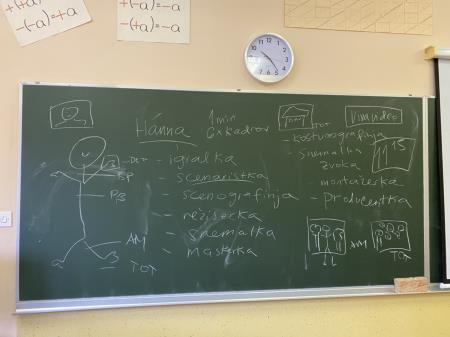 -(+a)=-a
-(-a)=+a
-(-a)=+a
Hánna
1 min
6x kadrov
TOT
Vimvideo
- igralka
- scenaristka
- scenografinja
- režiserka
- snemalka
- maskerka
- kostumografinja
- snemalka
zvoka
- montažerka
- producentka
11 15
DET
BP
AM
TOT
AM
TOT
12
11
10
9
8
7
6
5
4
3
2
1